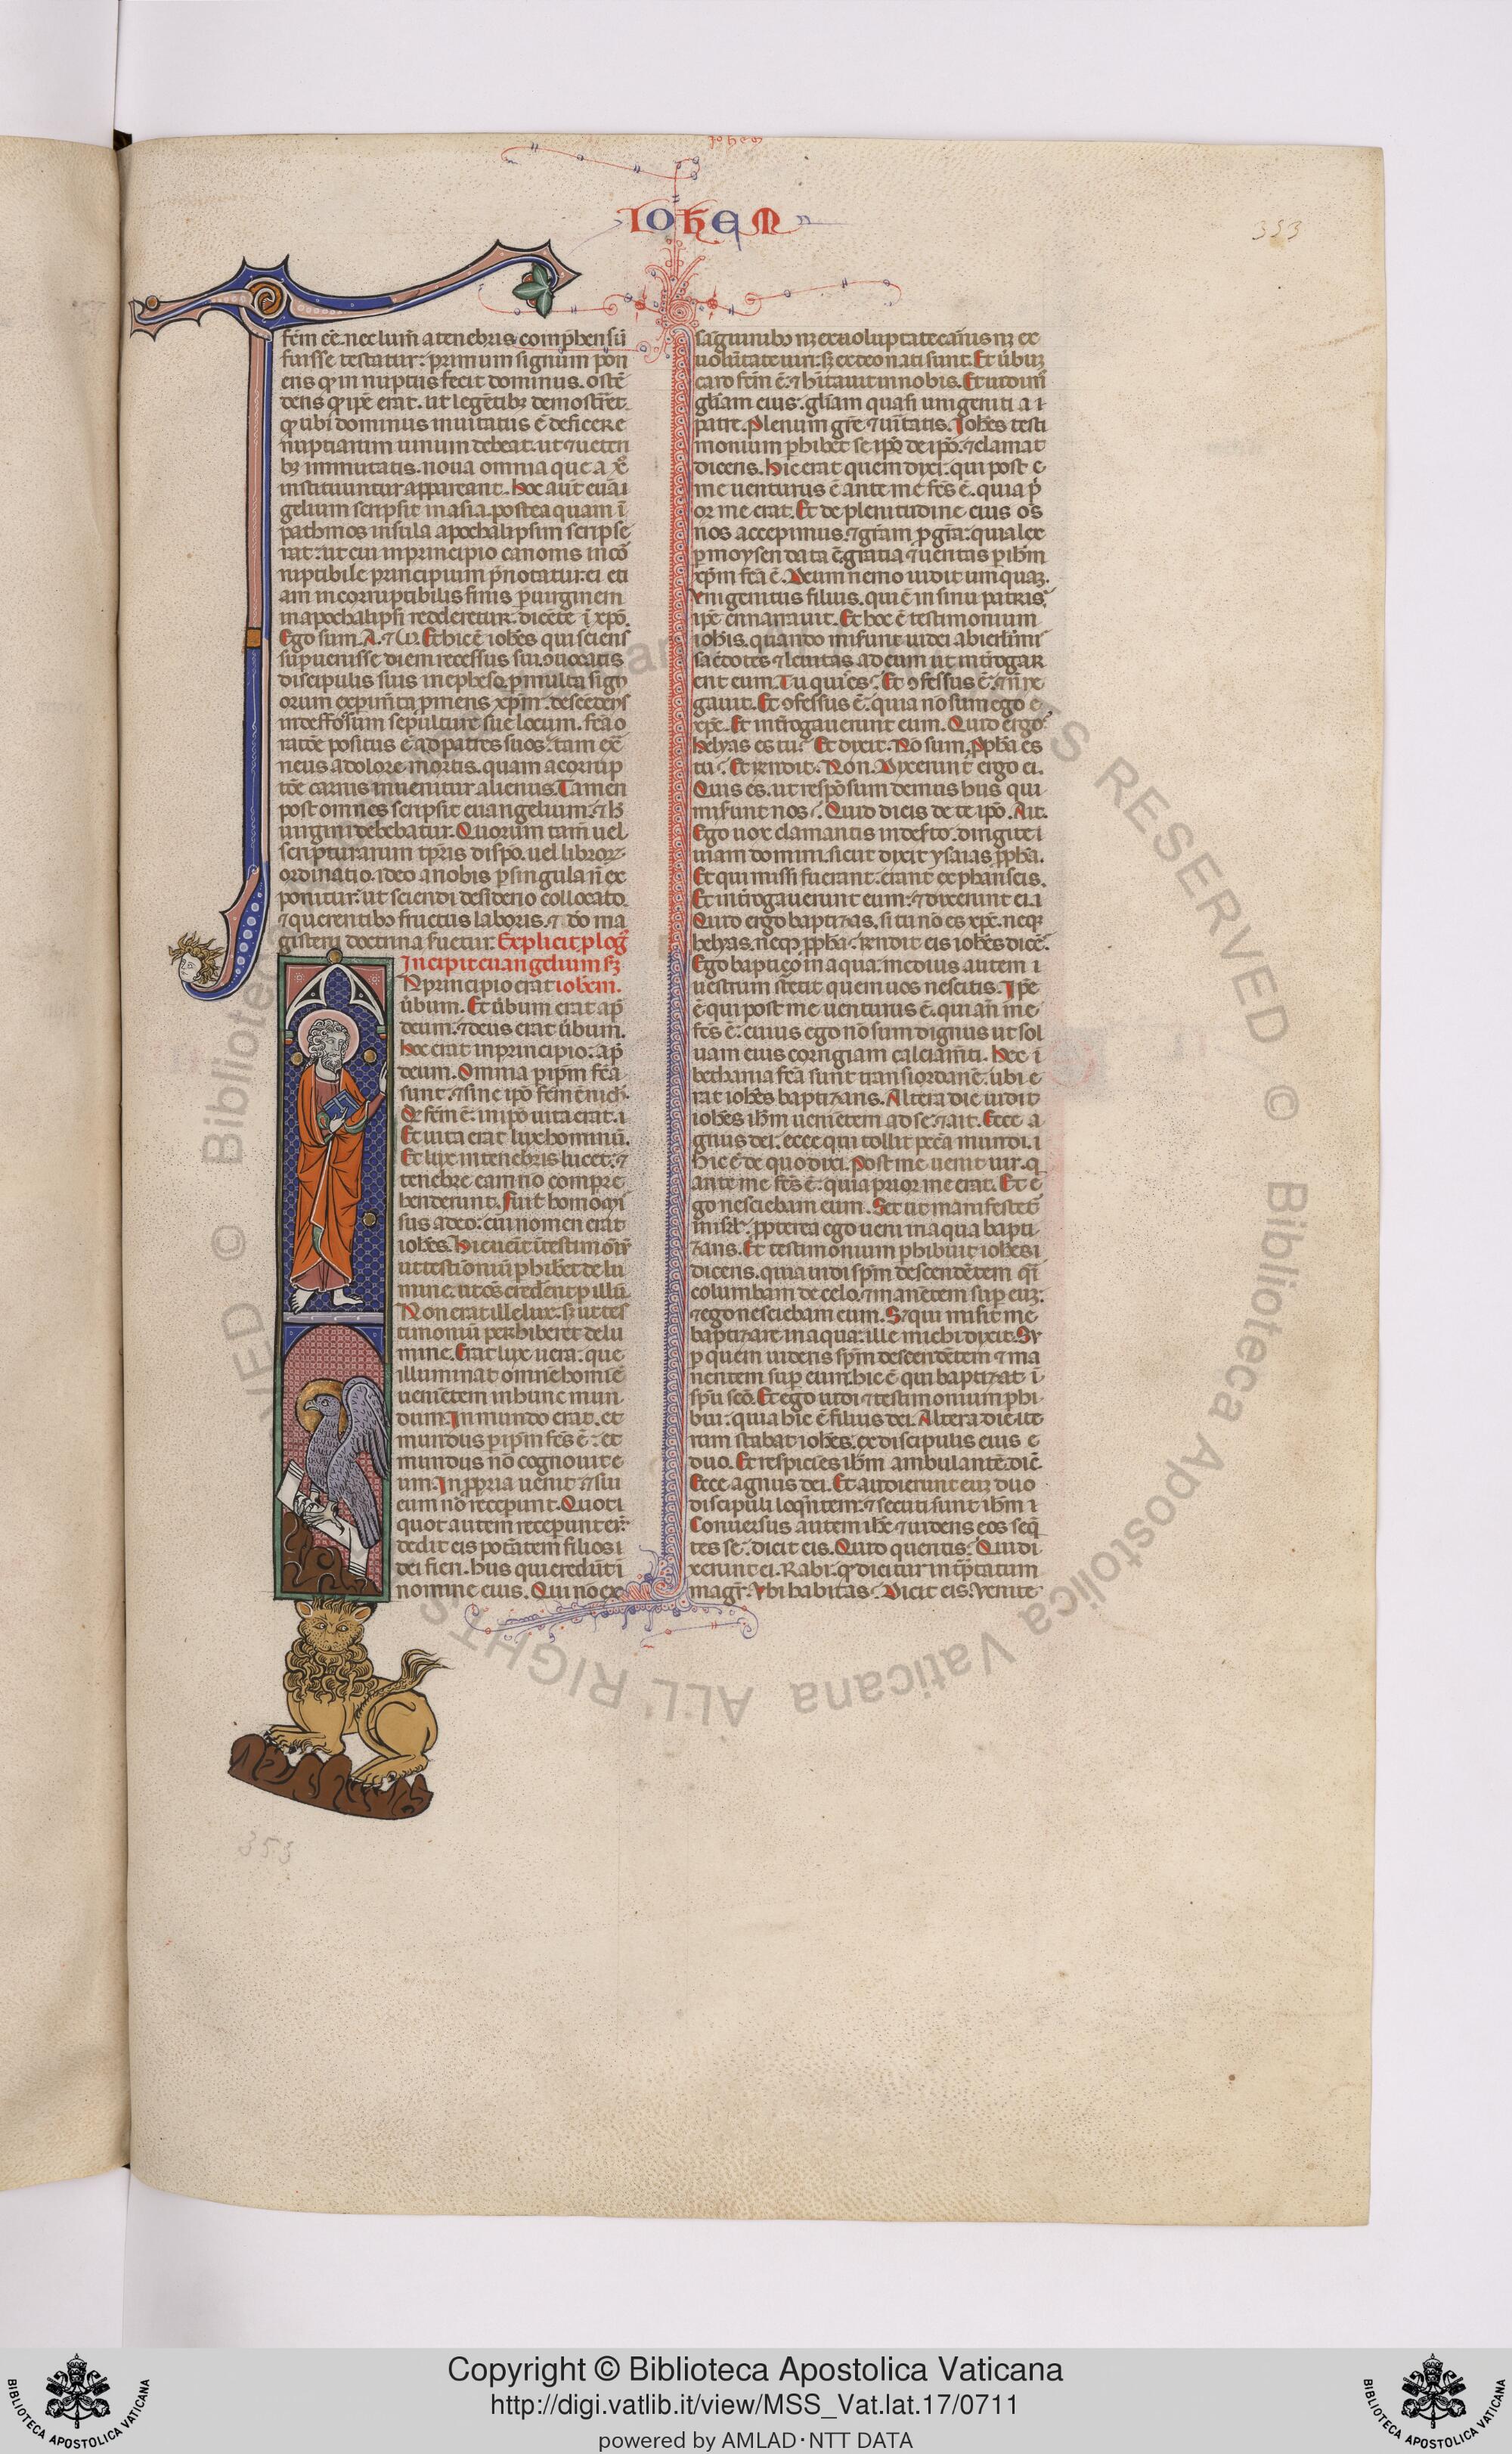 Iohem
IOHEM
353
fcm̄ eē. nec lum̄ a tenebris comp̄hensū
fuisse testatur: primum signum pon
ens qd̓ in nuptiis fecit dominus. ostē
dens qd̓ ipē erat. ut legētibꝫ demostr̄et.
qd̓ ubi dominus inuitatus ē deficere
nuptiarum uinum debeat. ut ⁊ ueteri
bꝫ immutatis. noua omnia que a xp̄o
instituuntur appareant. Hoc aut̄ euāi
gelium scripsit in asia. postea quam ī
pathmos insula apochalipsim scripse
rat: ut cui in principio canonis incō
ruptibile principium p̄notatur. ei eti
am incorruptibilis finis p̄ uirginem
in apochalipsi redderetur. dicēte ī xpō.
Ego sum. A. ⁊ ω. Et hic ē ioh̄es qui sciens
sup̄uenisse diem recessus sui. ꝯuocatis
discipulis suis in epheso. p̄ multa sign
orum exp̄im̄ta p̄mens xp̄m. descendēs
in deffossum sepulture sue locum. fc̄a o
ratōe positus ē ad patres suos. tam ex̄
neus a dolore mortis. quam a corrup
tōe carnis inuenitur alienus. Tamen
post omnes scripsit euangelium. ⁊ h̄
uirgini debebatur. Quorum tam̄ uel
scripturarum tp̄ris dispō. uel libroꝝ
ordinatio. ideo a nobis p̄ singula n̄ ex
ponitur: ut sciendi desiderio collocato.
⁊ querentibꝫ fructus laboris. ⁊ dō ma
gisterii doctrina suetur. Explicit ploḡ
Incipit euangelium sꝫ
N principio erat iohem.
ūbum. Et ūbum erat ap̄
deum. ⁊ deus erat ūbum.
Hoc erat in principio: ap̄
deum. Omnia p̄ ip̄m fc̄a
sunt. ⁊ sine ipō fcm̄ ē nich̓.
Qd̓ fcm̄ ē. in ipō uita erat. i
Et uita erat lux hominū.
Et lux in tenebris lucet. ⁊
tenebre eam nō compre
henderunt. Fuit homo mi
sus a deo: cui nomen erat
ioh̄es. Hic uēit ī testimoīū
ut testioniū p̄hib̄et de lu
mine. ut oēs cred̄ent p̄ illū.
Non erat ille lux. sꝫ ut tes
timoniū perhiberet de lu
mine. Erat lux uera: que
illuminat omnē homīē
uenientem in hunc mun
dum. In mundo erat. et
mundus p̄ ip̄m fc̄s ē: et
mundus nō cognouit e
um. In p̄pria uenit ⁊ sui
eum nō recep̄unt. Quoti
quot autem recep̄unt eū:
dedit eis potātem filios i
dei fieri. hiis qui credūt ī
nomine eius. Qui nō ex
sāguinibꝫ nꝫ ex uoluptate carnis nꝫ ex
uolūtate uiri: sꝫ ex deo nati sunt. Et ūbuꝫ
caro fcm̄ ē: ⁊ h̄itauit in nobis. Et uidim̄
gl̄iam eius: gl̄iam quasi unigeniti a i
patre. Plenum gr̄e ⁊ uītatis. Ioh̄es testi
monium p̄hibet se ip̄o de ip̄o. ⁊ clamat
dicens. Hic erat quem dixi: qui post e
me uenturus ē ante me fc̄s ē. quia p̄
or me erat. Et de plenitudine eius oēs
nos accepimus. ⁊ gr̄am p̄ gr̄a: quia lex
p̄ moysen data ē. gratia ⁊ ueritas p̄ ih̄m
xp̄m fc̄a ē. Deum nemo uidit unquaꝫ.
Unigenitus filius. qui ē in sinu patris
ip̄e ennarrauit. Et hoc ē testimonium
ioh̄is. quando miserunt iudei ab ierlīmi
sac̄dotes ⁊ leuitas ad eum ut int̄rogar
ent eum. Tu quis es. Et ꝯfessus ē. ⁊ n̄ ne
gauit. Et ꝯfessus ē. quia nō sum ego e
xp̄c. Et int̄rogauerunt eum. Quid ergo
helyas es tu. Et dixit. Nō sum. P̄ph̄a es
tu. Et r̄ndit. Non. Dixerunt ergo ei.
Quis es. ut respōsum demus hiis qui
miserunt nos. Quid dicis de te ip̄o. Ait.
Ego uox clamantis in desto. dirigite i
uiam domini. sicut dixit ysaias p̄ph̄a.
Et qui missi fuerant. erant ex phariseis.
Et int̄rogauerunt eum: ⁊ dixerunt ei. i
Quid ergo baptizas. si tu nō es xp̄c. neqꝫ
helyas. neqꝫ p̄ph̄a. r̄ndit eis ioh̄es dicē.
Ego baptiço in aqua. medius autem i
uestrum stetit quem uos nescitis. Ip̄e
ē qui post me uenturus ē. qui an̄ me
fc̄s ē: cuius ego nō sum dignus ut sol
uam eius corrigiam calciam̄ti. Hec i
bethania fc̄a sunt trans iordanē: ubi e
rat ioh̄es baptizans. Altera die uidit
ioh̄es ih̄m uenientem ad se. ⁊ ait. Ecce a
gnus dei. ecce qui tollit pcc̄a mundi. i
Hic ē de quo dixi. Post me uenit uir. q
ante me fc̄s ē: quia prior me erat. Et e
go nesciebam eum. Set ut manifestet̄
in isrl̄. p̄pterea ego ueni in aqua bapti
zans. Et testimonium p̄hibuit ioh̄es i
dicens. quia uidi sp̄m descendētem q̄i
columbam de celo. ⁊ manētem sup̄ euꝫ.
⁊ ego nesciebam eum. Sꝫ qui misit me
baptizare in aqua: ille michi dixit. Su
p̄ quem uideris sp̄m descendētem ⁊ ma
nentem sup̄ eum. hic ē qui baptizat ī
sp̄u sc̄o. Et ego uidi ⁊ testimonium p̄hi
bui: quia hic ē filius dei. Altera die ite
rum stabat ioh̄es. ex discipulis eius e
duo. Et respiciēs ih̄m ambulantē. dic̄.
Ecce agnus dei. Et audierunt euꝫ duo
discipuli loq̄ntem. ⁊ secuti sunt ih̄m i
Conuersus autem ih̄c ⁊ uidens eos seq̄
tes se: dicit eis. Quid queritis. Qui di
xerunt ei. Rabi. qd̓ dicitur int̄p̄tatum
magr̄. Ubi habitas. Dicit eis. Venite
353
© Biblioteca Apostolica Vaticana ALL RIGHTS RESERVED
Copyright © Biblioteca Apostolica Vaticana
http://digi.vatlib.it/view/MSS_Vat.lat.17/0711
powered by AMLAD・NTT DATA
BIBLIOTECA APOSTOLICA VATICANA
BIBLIOTECA APOSTOLICA VATICANA